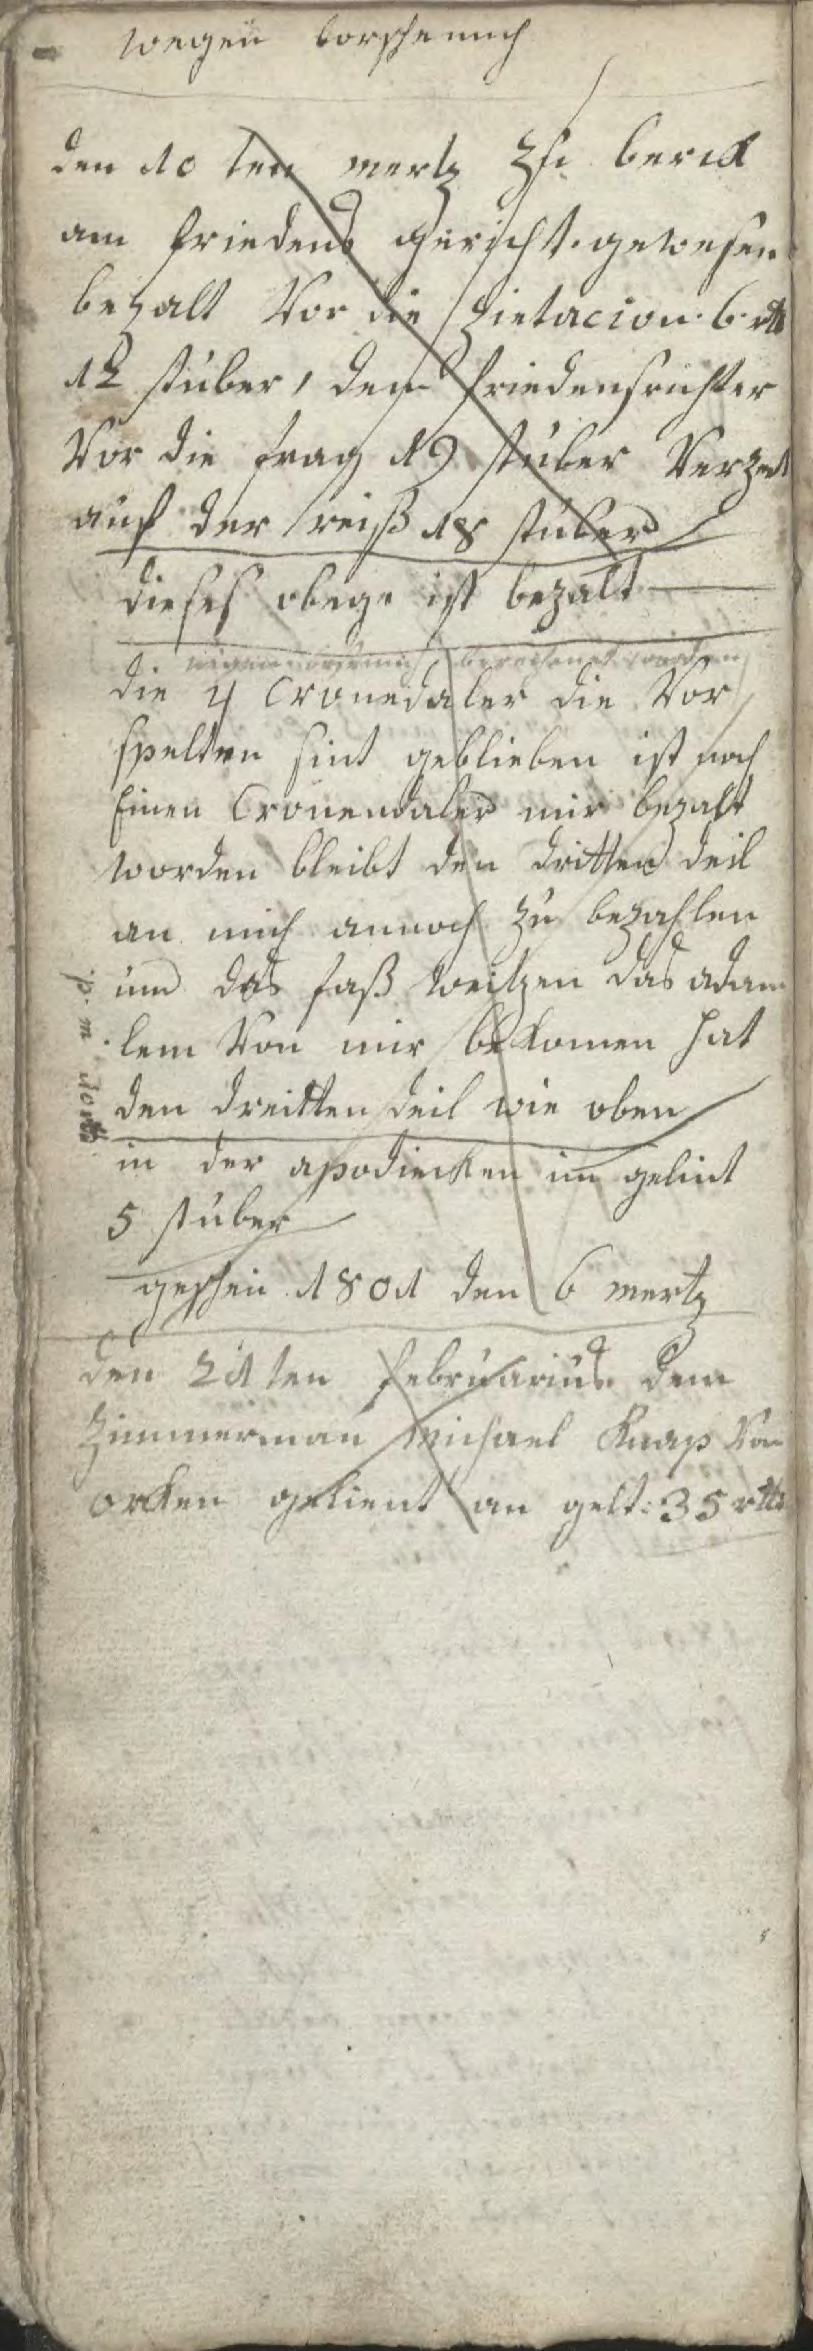 wegen borschemich
den 10 ten mertz zu berck
am friedens gericht gewesen
bezalt Vor die zietacion 6 rtt
12 stuber, dem friedensrichter
Vor die frag 19 stuber Verzert
auf der reiß 18 stuber
dieses obege ist bezalt
wegen borschemich berechenet worden
die 4 Cronedaler die Vor
spelten sint geblieben ist noch
Einen Cronendaler mir bezalt
worden bleibt den dritten deil
an mich annoch zu bezahlen
und das faß weitzen das adam
lem Von mir bekomen hat
den dreitten deil wie oben
in der apodiecken im gelint
5 stuber
geschein 1801 den 6 mertz
den 21 ten februarius dem
Zimmerman Michael Knap Von
orcken gelient an gelt: 35 rtt